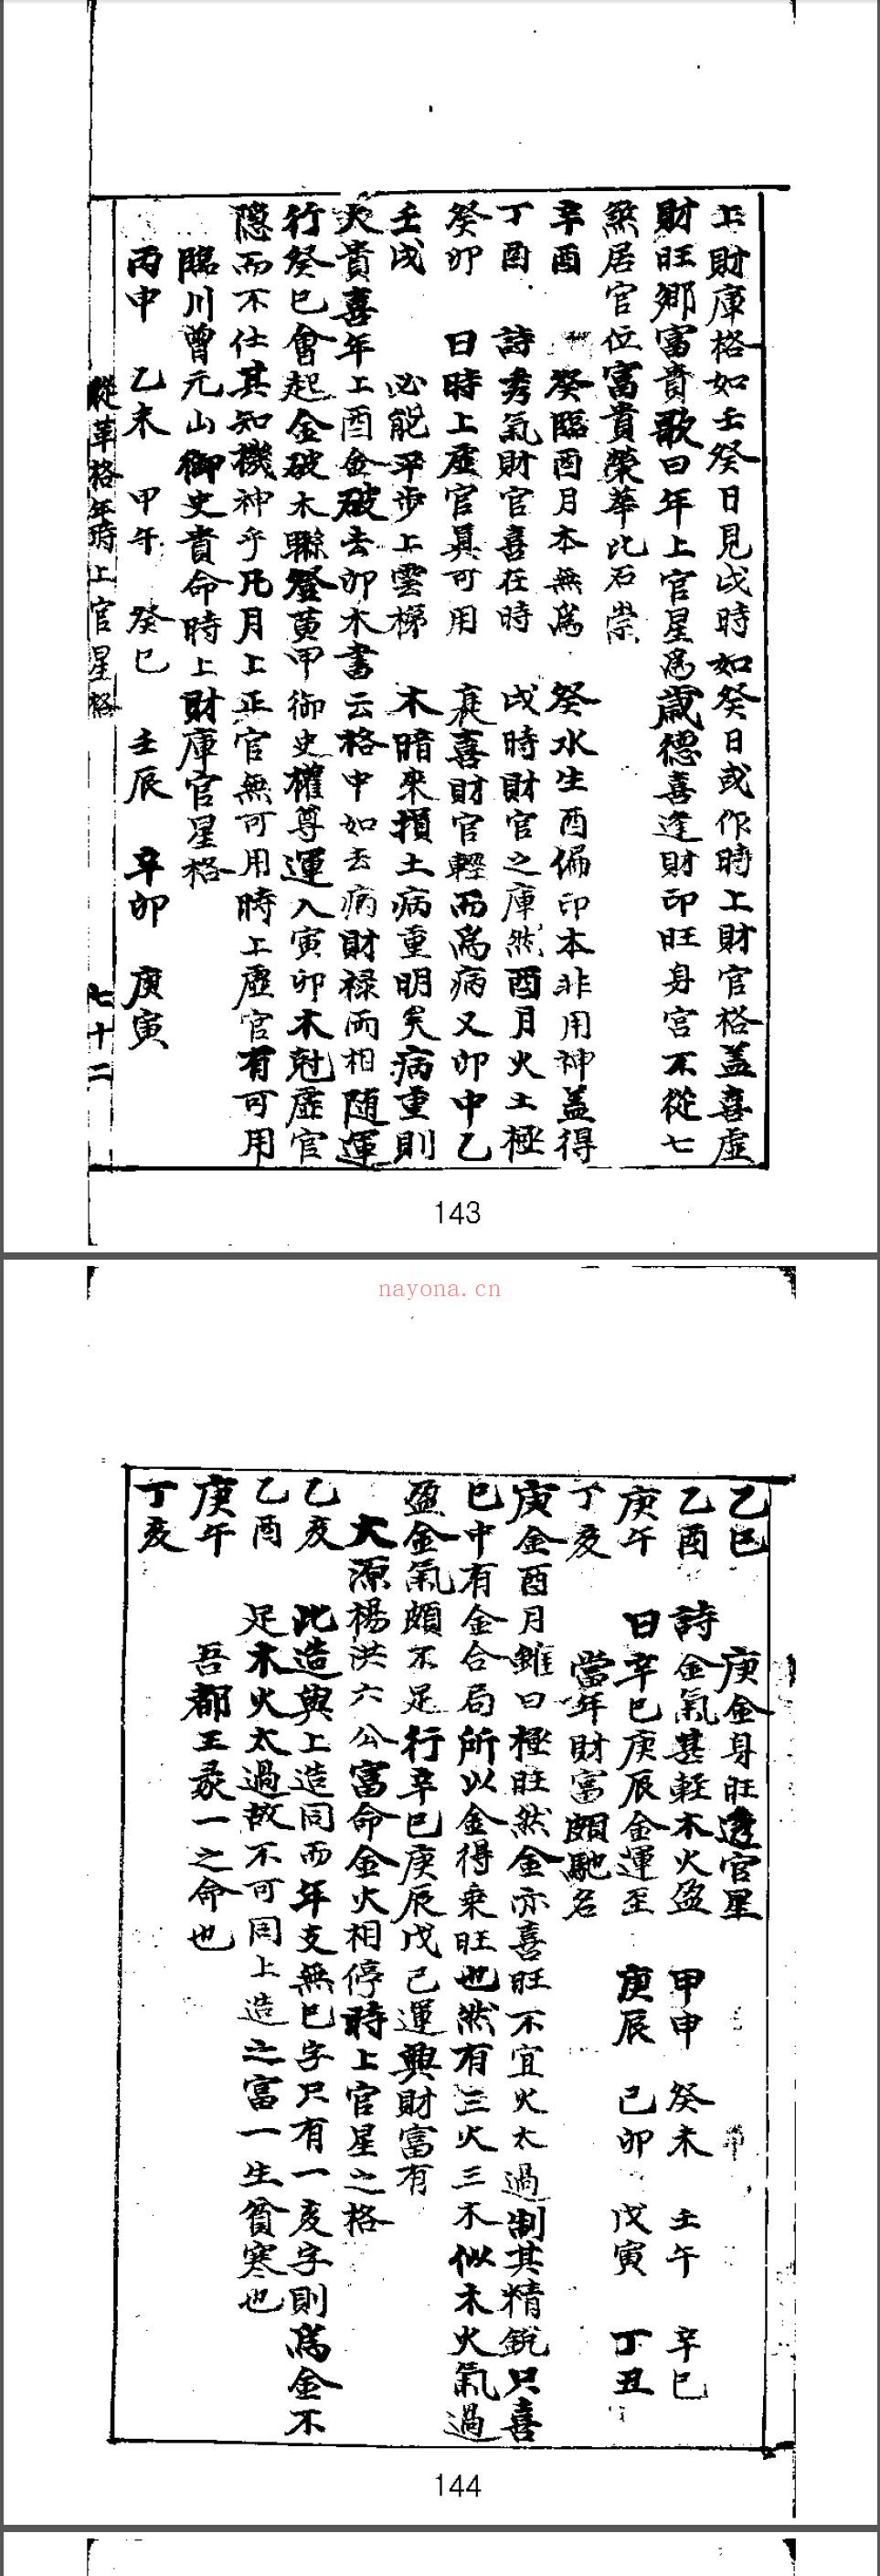 上財庫格如壬癸日見戌時如癸日或作時上財官格盖喜虛
財旺鄉富貴歌曰年上官星爲歲德喜逢財印旺身宮不從七
煞居官位富貴榮華比石崇
辛酉 癸臨酉月本無爲 癸水生酉偏印本非用神盖得
丁酉 詩秀氣財官喜在時 戌時財官之庫然酉月火土極
癸卯 曰時上虛官真可用 衰喜財官輕而爲病又卯中乙
壬戌 必能平步上雲梯 木暗來損土病重明矣病重則
大貴喜年上酉金破去卯木書云格中如去病財祿而相随運
行癸巳會起金破木聯登黄甲御史權尊運入寅卯木尅虛官
隱而不仕其知機神乎凡月上正官無可用時上虛官有可用
臨川曾元山御史貴命時上財庫官星格
丙申 乙未 甲午 癸巳 壬辰 辛卯 庚寅
從革格年時上官星格 七十二
143
nayona.cn
乙巳 庚金身旺透官星
乙酉 詩金氣甚輕木火盈 甲申 癸未 壬午 辛巳
庚午 曰辛巳庚辰金運至 庚辰 己卯 戊寅 丁丑
丁亥 當年財富頗馳名
庚金酉月雖曰極旺然金亦喜旺不宜火太過制其精銳只喜
巳中有金合局所以金得乗旺也然有三火三木似木火氣過
盈金氣頗不足行辛巳庚辰戊己運興財富有
大源楊洪六公富命金火相停時上官星之格
乙亥 此造與上造同而年支無巳字只有一亥字則爲金不
乙酉 足木火太過故不可同上造之富一生貧寒也
庚午 吾都王彔一之命也
丁亥
144